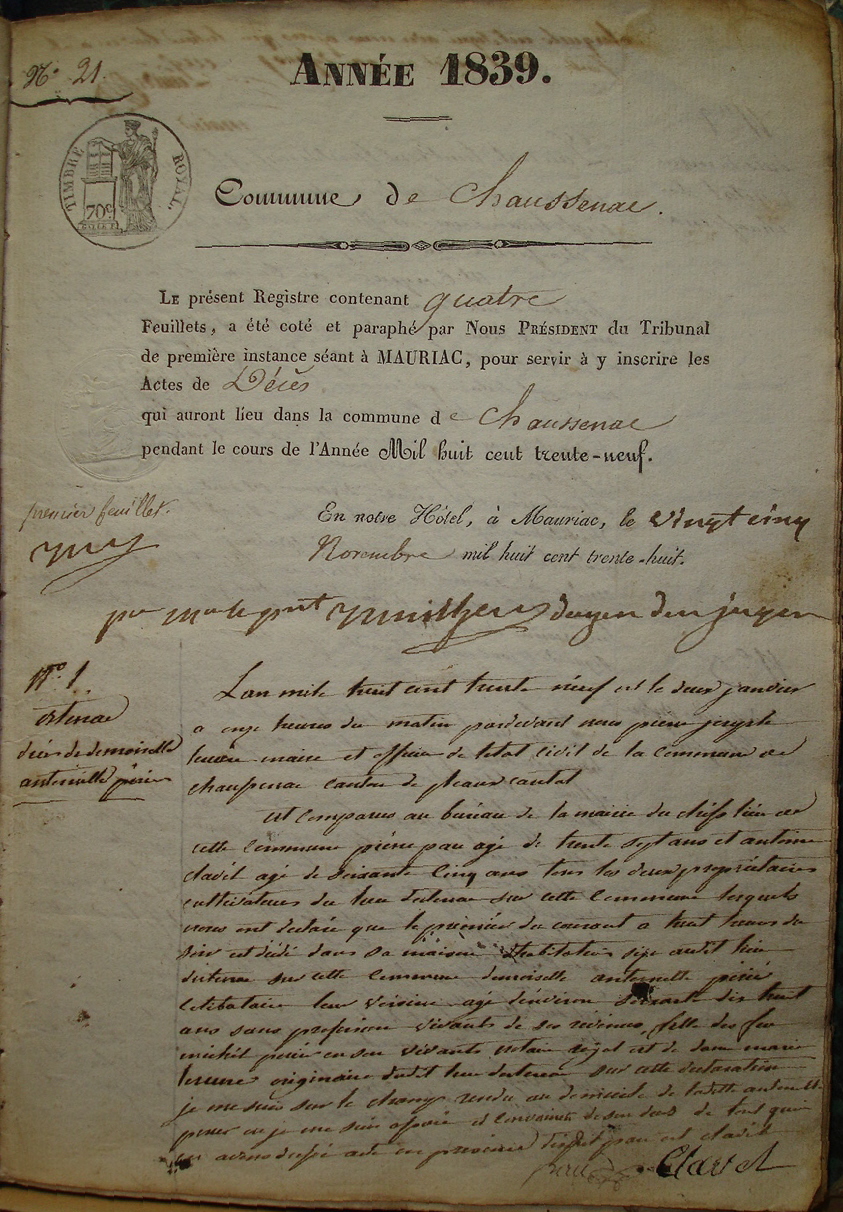 N.º 21.
ANNÉE 1839.
TIMBRE ROYAL.
70c
Commune de Chaussenac.
LE présent Registre contenant quatre
Feuillets, a été coté et paraphé par Nous PRÉSIDENT du Tribunal
de première instance séant à MAURIAC, pour servir à y inscrire les
Actes de Décès
qui auront lieu dans la commune de Chaussenac
pendant le cours de l'Année Mil huit cent trente-neuf.
premier feuillet.
En notre Hôtel, à Mauriac, le vingt cinq
Novembre mil huit cent trente-huit.
doyen des juges
N.º 1
ostenac
décès de demoiselle
antoinette
L'an mile huit cent trente neuf et le deux janvier
a onze heures du matin pardevant nous pierre joseph
maire et officier de letat civil de la commune de
chaussenac canton de pleaux cantal
est comparus au bureau de la mairie du chef lieu de
cette commune pierre pau agé de trente sept ans et antoine
clavit agé de soixante cinq ans tous les deux propriétaires
cultivateurs du lieu dostenac sur cette commune lesquels
nous ont déclaré que le premier du courant a huit heures du
soir est dédé dans sa maison dhabitation sise audit lieu
dostenac sur cette commune demoiselle antoinette
celibataire leur voisine agé denviron soixante dix huit
ans sans profession vivants de ses revenus, fille des feu
michel en son vivants notaire royal et de dame marie
originaire dudit lieu dostenac sur cette déclaration
je me suis sur le champ rendu au domicile de ladite antoinette
ou je me suis assuré et convaincu de son décès de tout quoi
avons dressé acte en présence